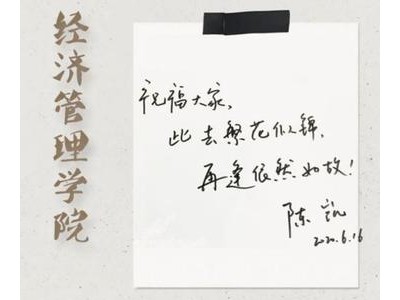 经济管理学院
祝福大家，
此去繁花似锦，
再逢依然如故！
陈凯
2020.6.16